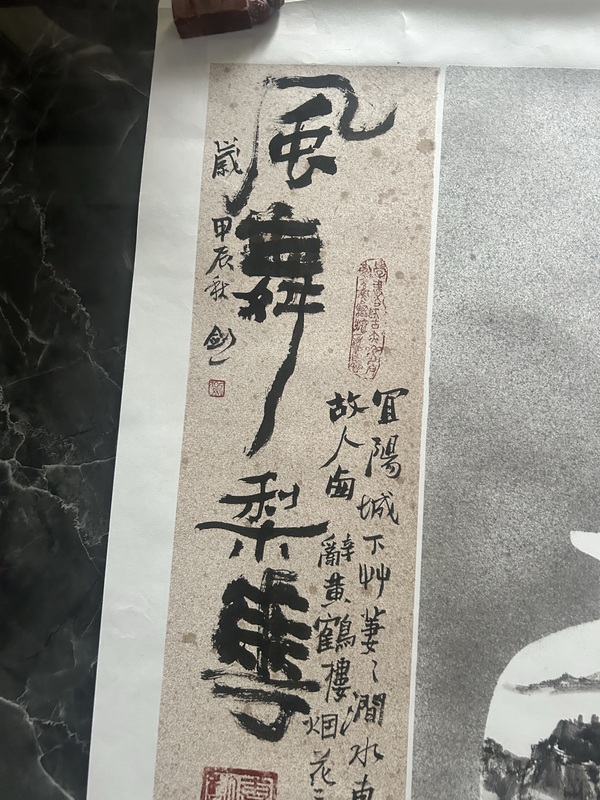 風舞梨
宜陽城下艸萋〻澗水東
故人鹵辭黃鶴樓烟花三
歲甲辰秋